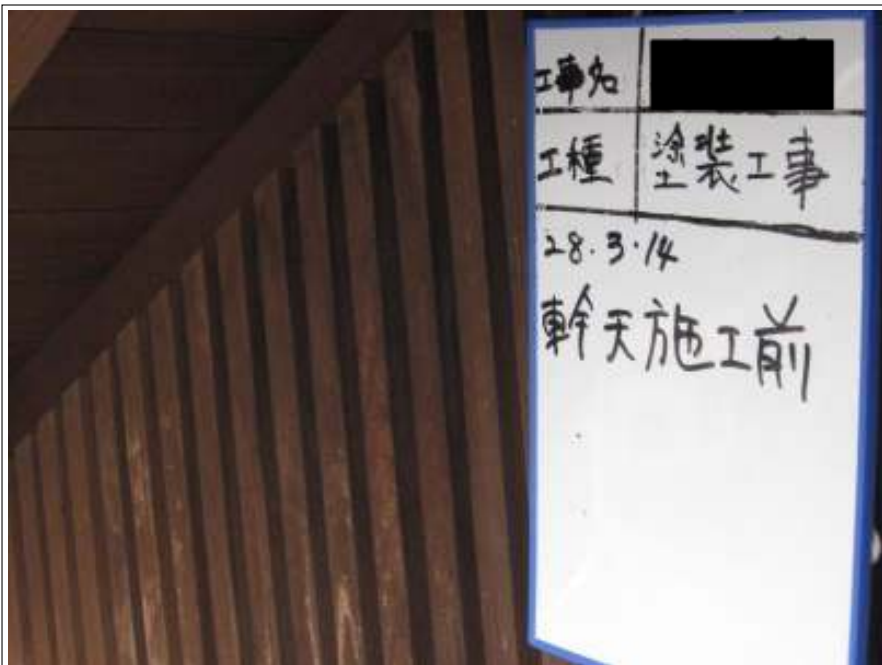 工事名
工種 塗装工事
28.3.14
幹天施工前